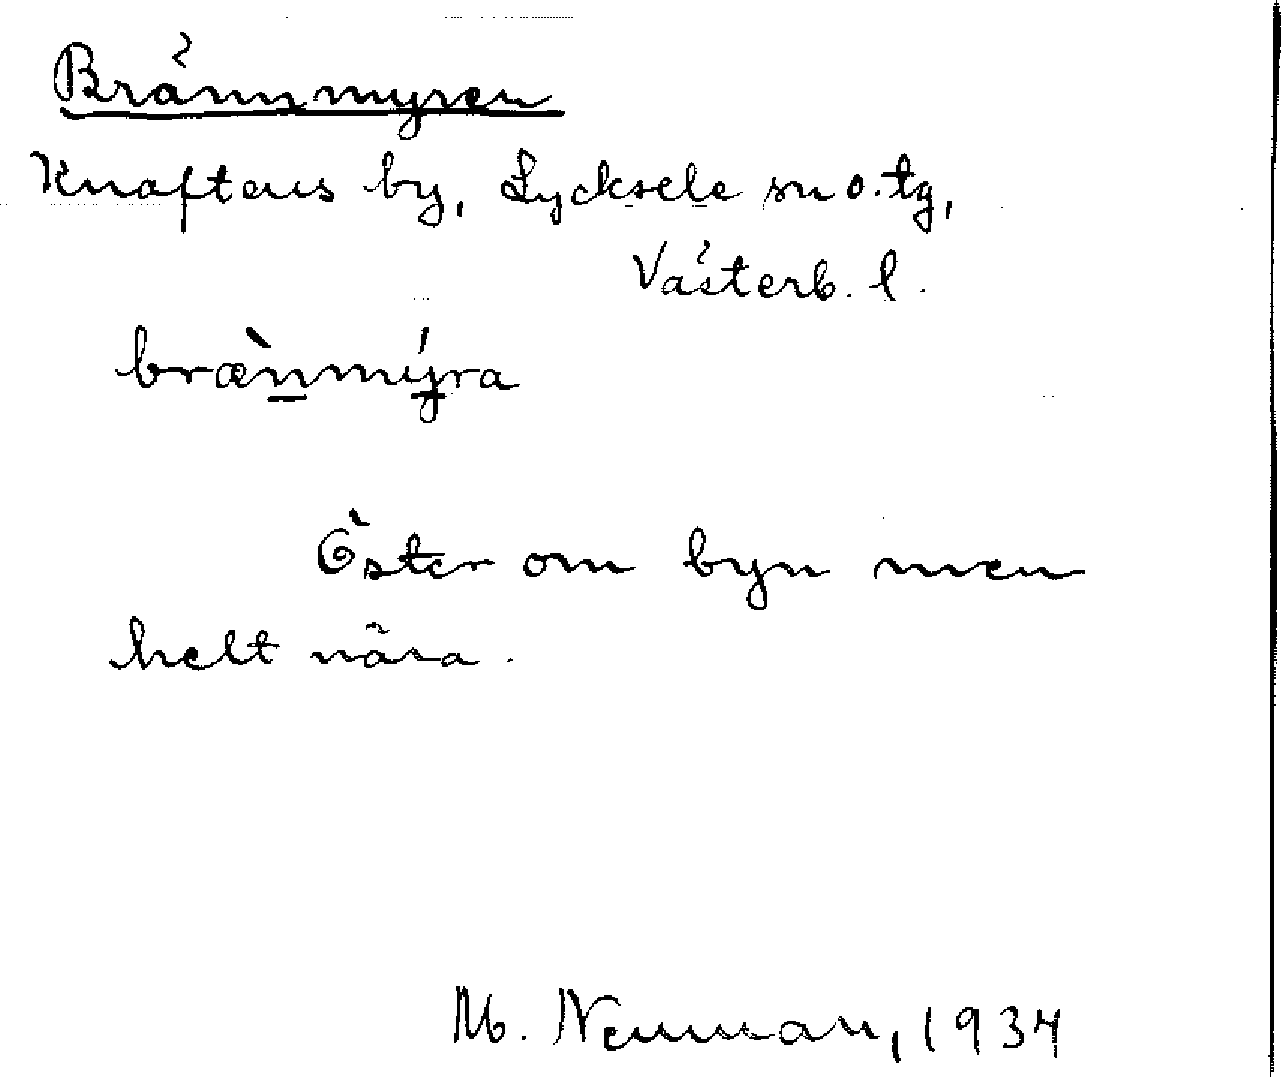 Brännmyren
Knaftens by, Lycksele sn o. tg,
Västerb. l.
bræ̀n̲mýra
Öster om byn men
helt nära.
M. Neuman, 1934